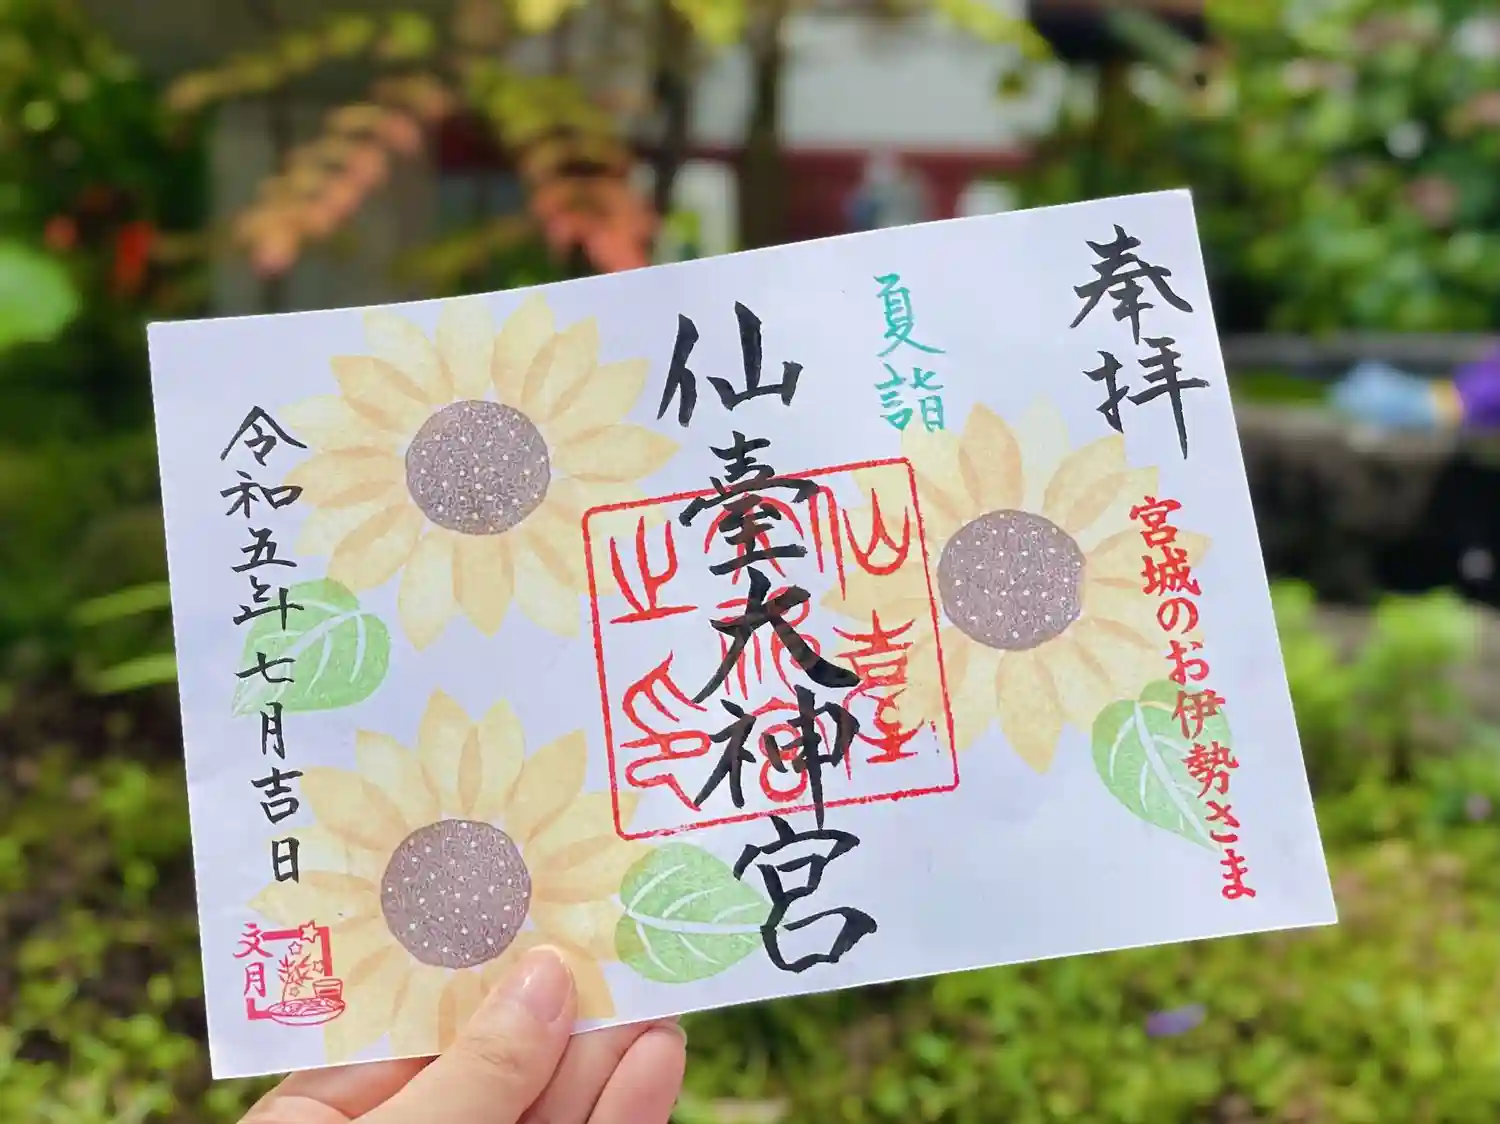 奉拝
宮城のお伊勢さま
夏詣
仙臺大神宮
仙臺
大神宮
之印
令和五年七月吉日
文月